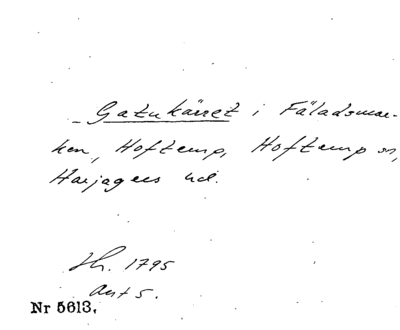 Gatukärret i Fäladsmar-
ken, Hoftemp, Hoftemp sn,
Harjagers hd.
Sk. 1795
ant 5.
Nr 5613.